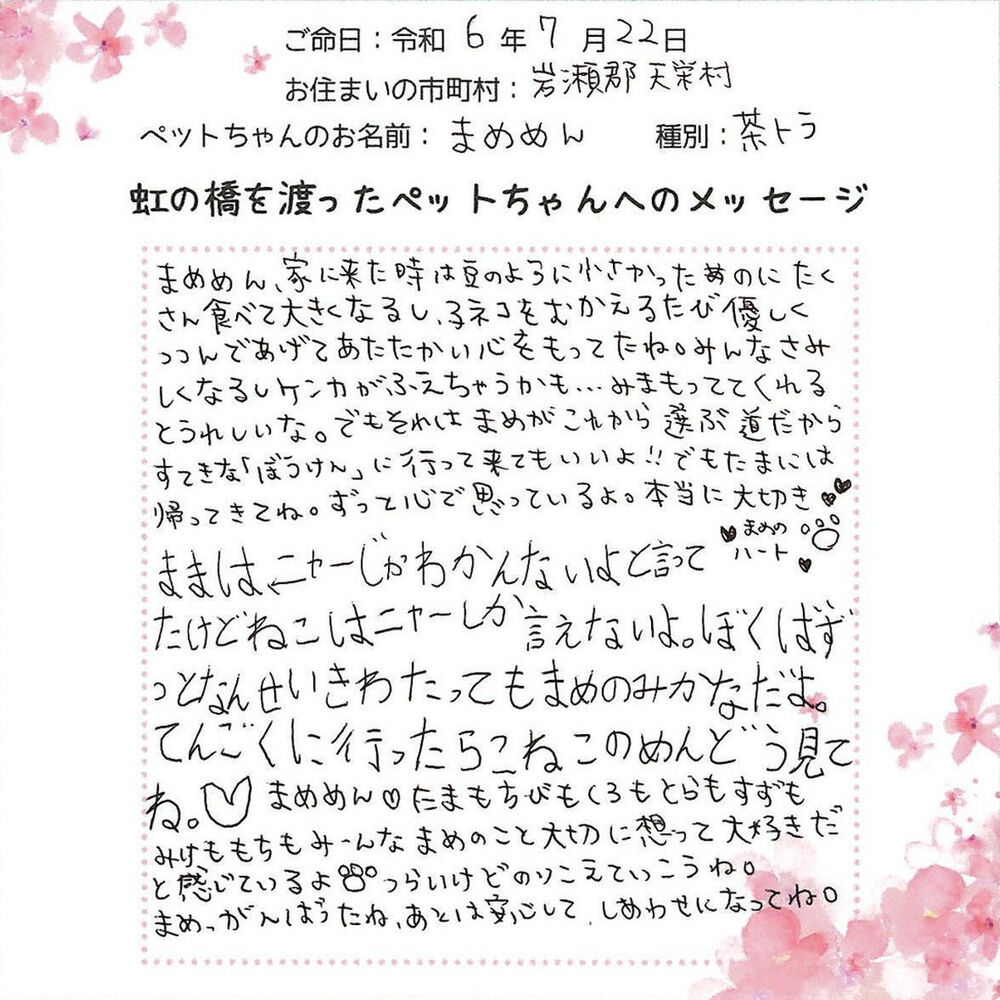 ご命日:令和 6 年 7 月22日
お住まいの市町村:岩瀬郡 天栄村
ペットちゃんのお名前: まめめん 種別:茶トラ
虹の橋を渡ったペットちゃんへのメッセージ
まめめん、家に来た時は豆のように小さかったあのに たく
さん食べて大きくなるし、子ネコをむかえるたび優しく
つつんであげてあたたかい心をもってたね。みんなさみ
しくなるしケンカがふえちゃうかも…みまもっててくれる
とうれしいな。でもそれは まめがこれから 選ぶ道だから
すてきな「ぼうけん」に行って来てもいいよ!!でもたまには
帰ってきてね。ずっと心で思っているよ。本当に大切き
まめの
ハート
ままは、ニャーじゃわかんないよと言って
たけどねこはニャーしか言えないよ。ぼくはずず
っとなんせいきわたってもまめのみかなだよ。
てんごくに行ったらこねこのめんどう見て
ね。♡ まめめん♡たまもちびもくろもとらもすずも
みけももちもみーんなまめのこと大切に想って大好きだ
と感じているよ つらいけどのりこえていっこうね。
まめっがんばったね、あとは安心して しあわせになってね。